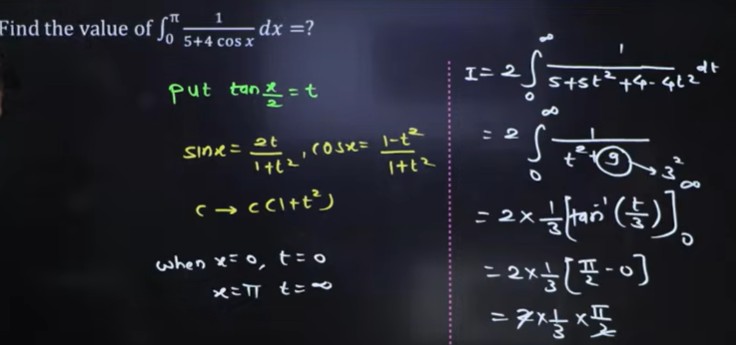 Find the value of ∫₀^π 1/(5+4 cos x) dx =?
put tan x/2 = t
sinx = 2t/(1+t²), cosx = (1-t²)/(1+t²)
c → c(1+t²)
when x=0, t=0
x=π t=∞
I = 2 ∫₀^∞ 1/(5+5t²+4-4t²) dt
= 2 ∫₀^∞ 1/(t²+9) → 3²
= 2 × 1/3 [tan⁻¹(t/3)]₀^∞
= 2×1/3 [π/2 - 0]
= 2×1/3 × π/2